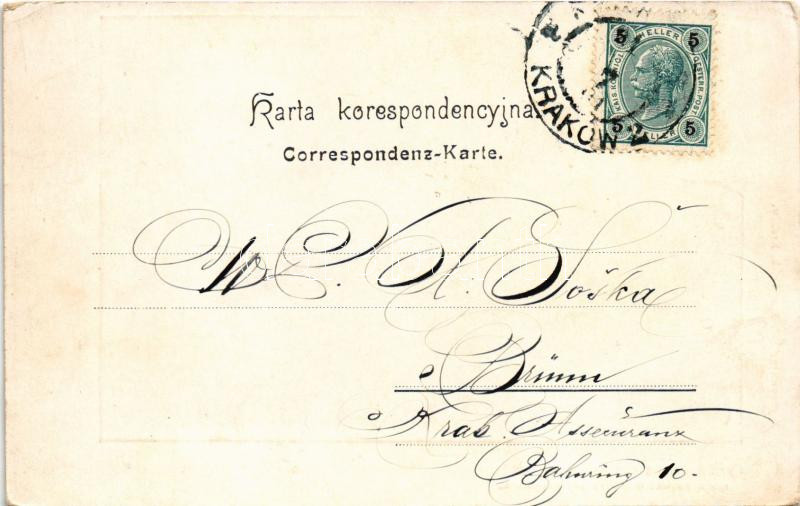 5 HELLER 5
KAIS. KÖNIGL. OESTERR. POST
5 HELLER 5
KRAKÓW 2
Karta korespondencyjna.
Correspondenz-Karte.
W. C. A. Soška
Brünn
Krak. Assecuranz
Bahnring 10.